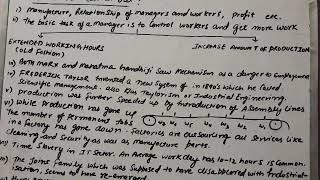 i) manufacture, Relationship of managers and workers, profit etc.
ii) The basic task of a manager is to control workers and get more work
EXTENDED WORKING HOURS
(Old Fashion)
INCREASE AMOUNT OF PRODUCTION
iii) Both MARX and Mahatma Gandhiji saw Mechanism as a danger to Employment
iv) FREDERICK TAYLOR invented a new System in 1890s which he called
Scientific management. also k/n Taylorism or Industrial Engineering.
v) production was further speeded up by introduction of Assembly Lines
vi) While production has gone up
The number of permanent Jobs
in a factory has gone down. Factories are outsourcing all services like
cleaning and security as well as manufacture parts.
vii) Time Slavery in IT Sector. An Average work day has 10-12 hours is common.
viii) The Joint Family which was supposed to have disappeared with Industriali-
sation, seems to have re-emerged